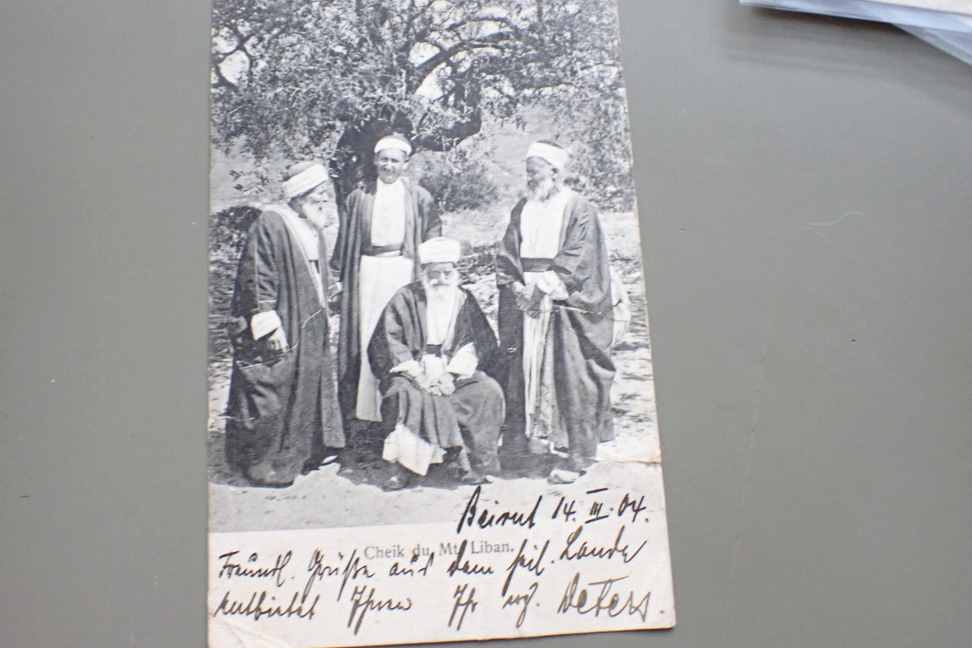 Beirut 14. III. 04.
Cheik du Mt. Liban.
Freundl. Grüße aus dem heil. Lande
entbietet Ihnen Ihr erg. Deters.